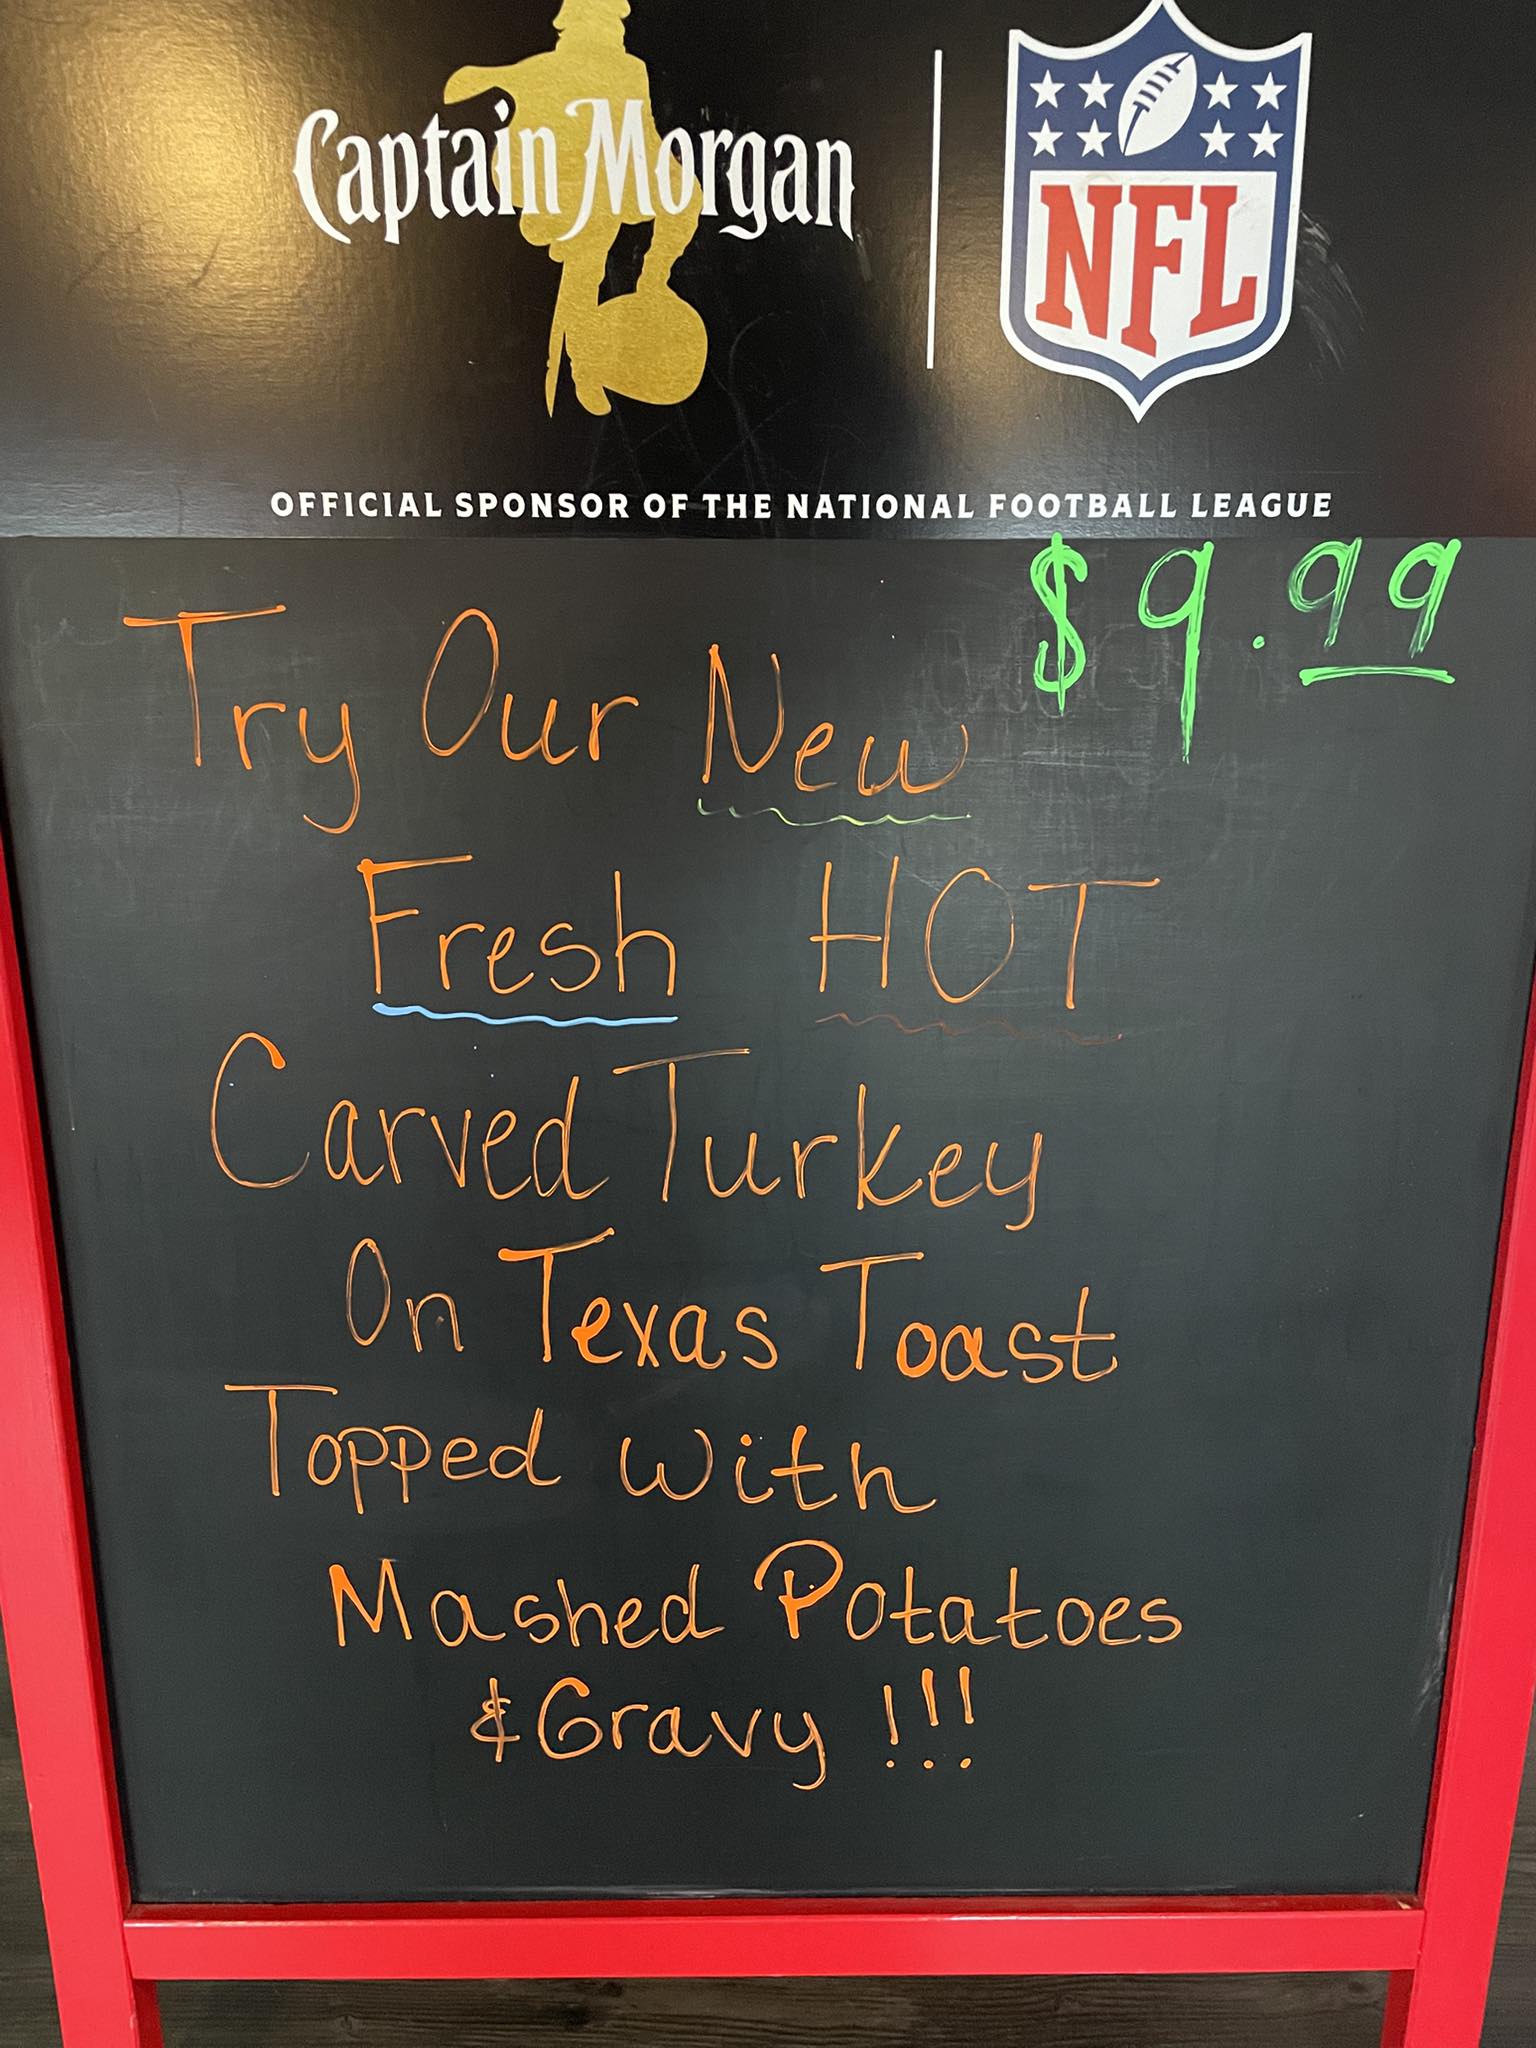 Captain Morgan
NFL
OFFICIAL SPONSOR OF THE NATIONAL FOOTBALL LEAGUE
$9.99
Try Our New
Fresh HOT
Carved Turkey
On Texas Toast
Topped with
Mashed Potatoes
& Gravy !!!